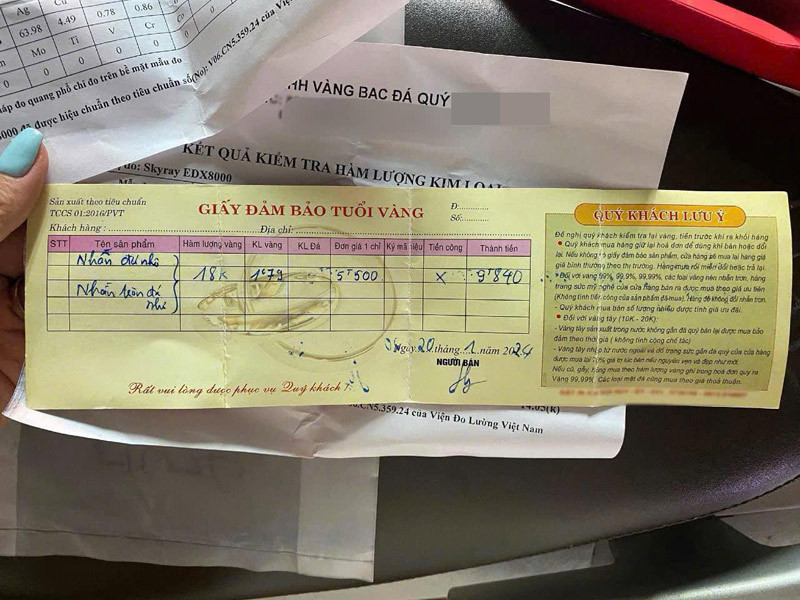 Ag
63.98 4.49 0.78 0.86
Mo Ti V Cr
0 0 0 0
háp đo quang phổ chỉ đo trên bề mặt mẫu đo
000 đã được hiệu chuẩn theo tiêu chuẩn số(No): V06.CN5.359.24 của Viện
NH VÀNG BẠC ĐÁ QUÝ
KẾT QUẢ KIỂM TRA HÀM LƯỢNG KIM LOẠI
đo: Skyray EDX8000
Sản xuất theo tiêu chuẩn
TCCS 01:2016/PVT
GIẤY ĐẢM BẢO TUỔI VÀNG
Đ:
Số:
Khách hàng : Địa chỉ:
STT Tên sản phẩm Hàm lượng vàng KL vàng KL Đá Đơn giá 1 chỉ Ký mã hiệu Tiền công Thành tiền
Nhẫn đá nhỏ
18K 1679 5500 X 9840
Nhẫn tròn đá
nhỏ
Ngày 20 tháng 1 năm 2024
NGƯỜI BÁN
Rất vui lòng được phục vụ Quý khách !
QUÝ KHÁCH LƯU Ý
Đề nghị quý khách kiểm tra lại vàng, tiền trước khi ra khỏi hàng
• Quý khách mua hàng giữ lại hoá đơn để dùng khi bán hoặc đổi
lại. Nếu không có giấy đảm bảo sản phẩm, cửa hàng sẽ mua lại hàng
giá bình thường theo thị trường. Hàng mua rồi miễn đổi hoặc trả lại.
• Đối với vàng 99%, 99.9%, 99.99%, các loại vàng nén nhẫn trơn, hàng
trang sức mỹ nghệ của cửa hàng bán ra được mua theo giá ưu tiên
(Không tính tiền công của sản phẩm đã mua). Hàng đô không đổi nhẫn trơn.
- Quý khách mua bán số lượng nhiều được tính giá ưu đãi.
• Đối với vàng tây (10K - 20K):
- Vàng tây sản xuất trong nước không gắn đá quý bán lại được mua bảo
đảm theo thời giá ( không tính công chế tác)
- Vàng tây nhập từ nước ngoài và đồ trang sức gắn đá quý của cửa hàng
được mua lại 70% giá trị tái bán nếu nguyên vẹn và đẹp như mới.
Nếu cũ, gẫy, hỏng mua theo hàm lượng vàng ghi trong hoá đơn quy ra
Vàng 99,99% Các loại mặt đá nũng mua theo giá thoả thuận.
14.05(k)
.CN5.359.24 của Viện Đo Lường Việt Nam